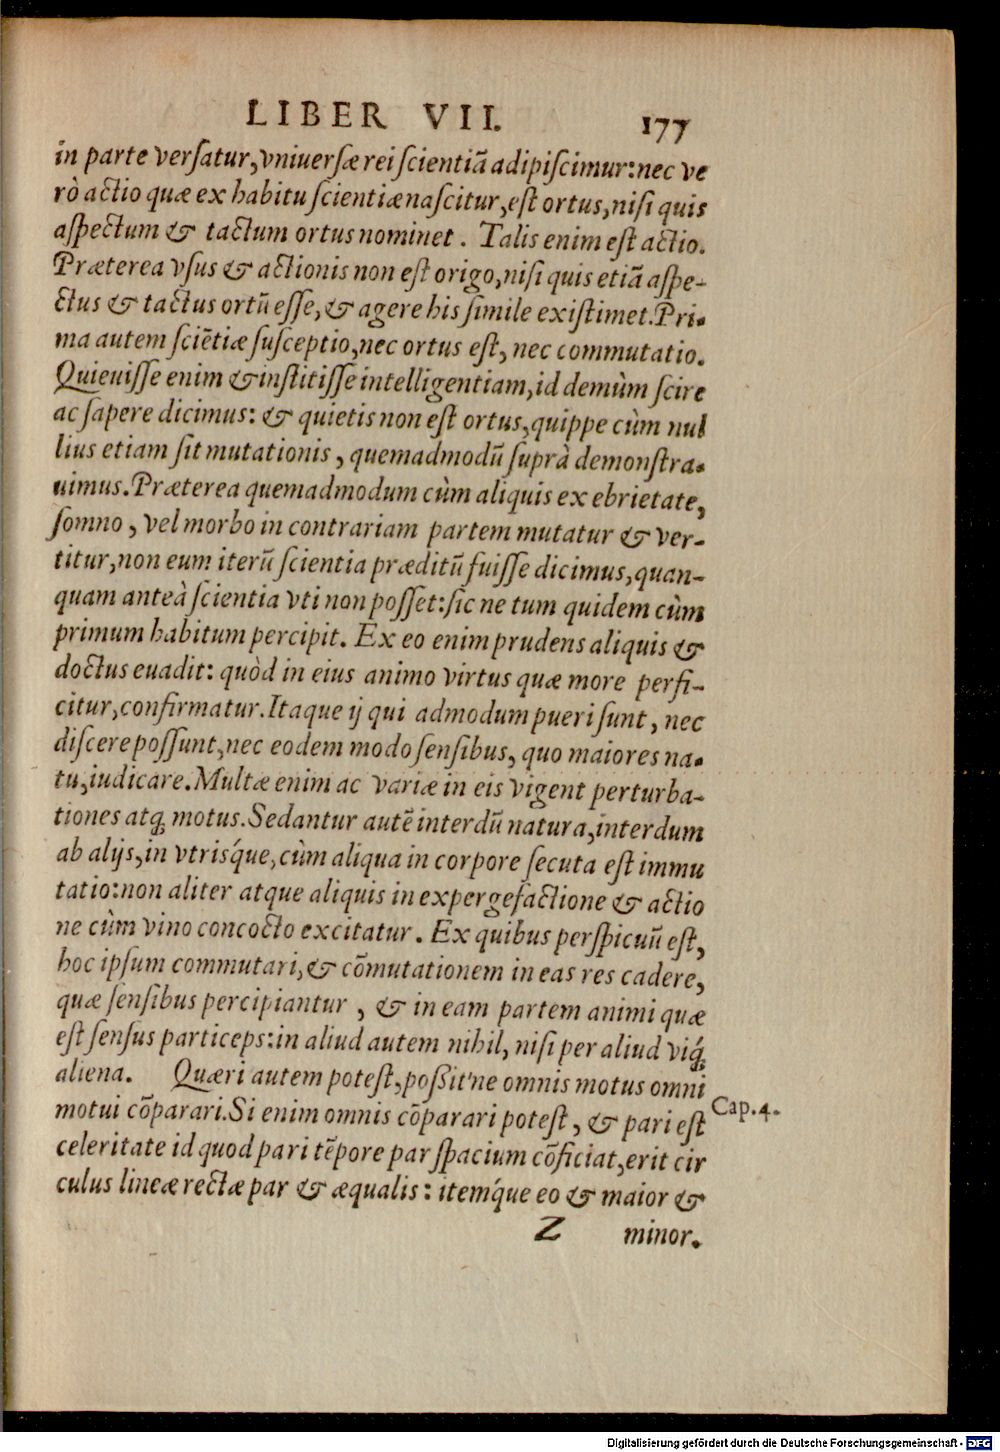 LIBER VII. 177
in parte versatur, vniuersæ rei scientiā adipiscimur: nec ve
rò actio quæ ex habitu scientiæ nascitur, est ortus, nisi quis
aspectum & tactum ortus nominet. Talis enim est actio.
Præterea vsus & actionis non est origo, nisi quis etiā aspe-
ctus & tactus ortū esse, & agere his simile existimet. Pri-
ma autem sciētiæ susceptio, nec ortus est, nec commutatio.
Quieuisse enim & institisse intelligentiam, id demùm scire
ac sapere dicimus: & quietis non est ortus, quippe cùm nul
lius etiam sit mutationis, quemadmodū suprà demonstra-
uimus. Præterea quemadmodum cùm aliquis ex ebrietate,
somno, vel morbo in contrariam partem mutatur & ver-
titur, non eum iterū scientia præditū fuisse dicimus, quan-
quam anteà scientia vti non posset: sic ne tum quidem cùm
primum habitum percipit. Ex eo enim prudens aliquis &
doctus euadit: quòd in eius animo virtus quæ more perfi-
citur, confirmatur. Itaque ij qui admodum pueri sunt, nec
discere possunt, nec eodem modo sensibus, quo maiores na-
tu, iudicare. Multæ enim ac variæ in eis vigent perturba-
tiones atq; motus. Sedantur autē interdū natura, interdum
ab alijs, in vtrisq́ue, cùm aliqua in corpore secuta est immu
tatio: non aliter atque aliquis in expergefactione & actio
ne cùm vino concocto excitatur. Ex quibus perspicuū est,
hoc ipsum commutari, & cōmutationem in eas res cadere,
quæ sensibus percipiantur, & in eam partem animi quæ
est sensus particeps: in aliud autem nihil, nisi per aliud viq́;
aliena. Quæri autem potest, poßit'ne omnis motus omni
motui cōparari. Si enim omnis cōparari potest, & pari est
Cap. 4.
celeritate id quod pari tēpore par spacium cōficiat, erit cir
culus lineæ rectæ par & æqualis: itemq́ue eo & maior &
Z minor.
Digitalisierung gefördert durch die Deutsche Forschungsgemeinschaft - DFG